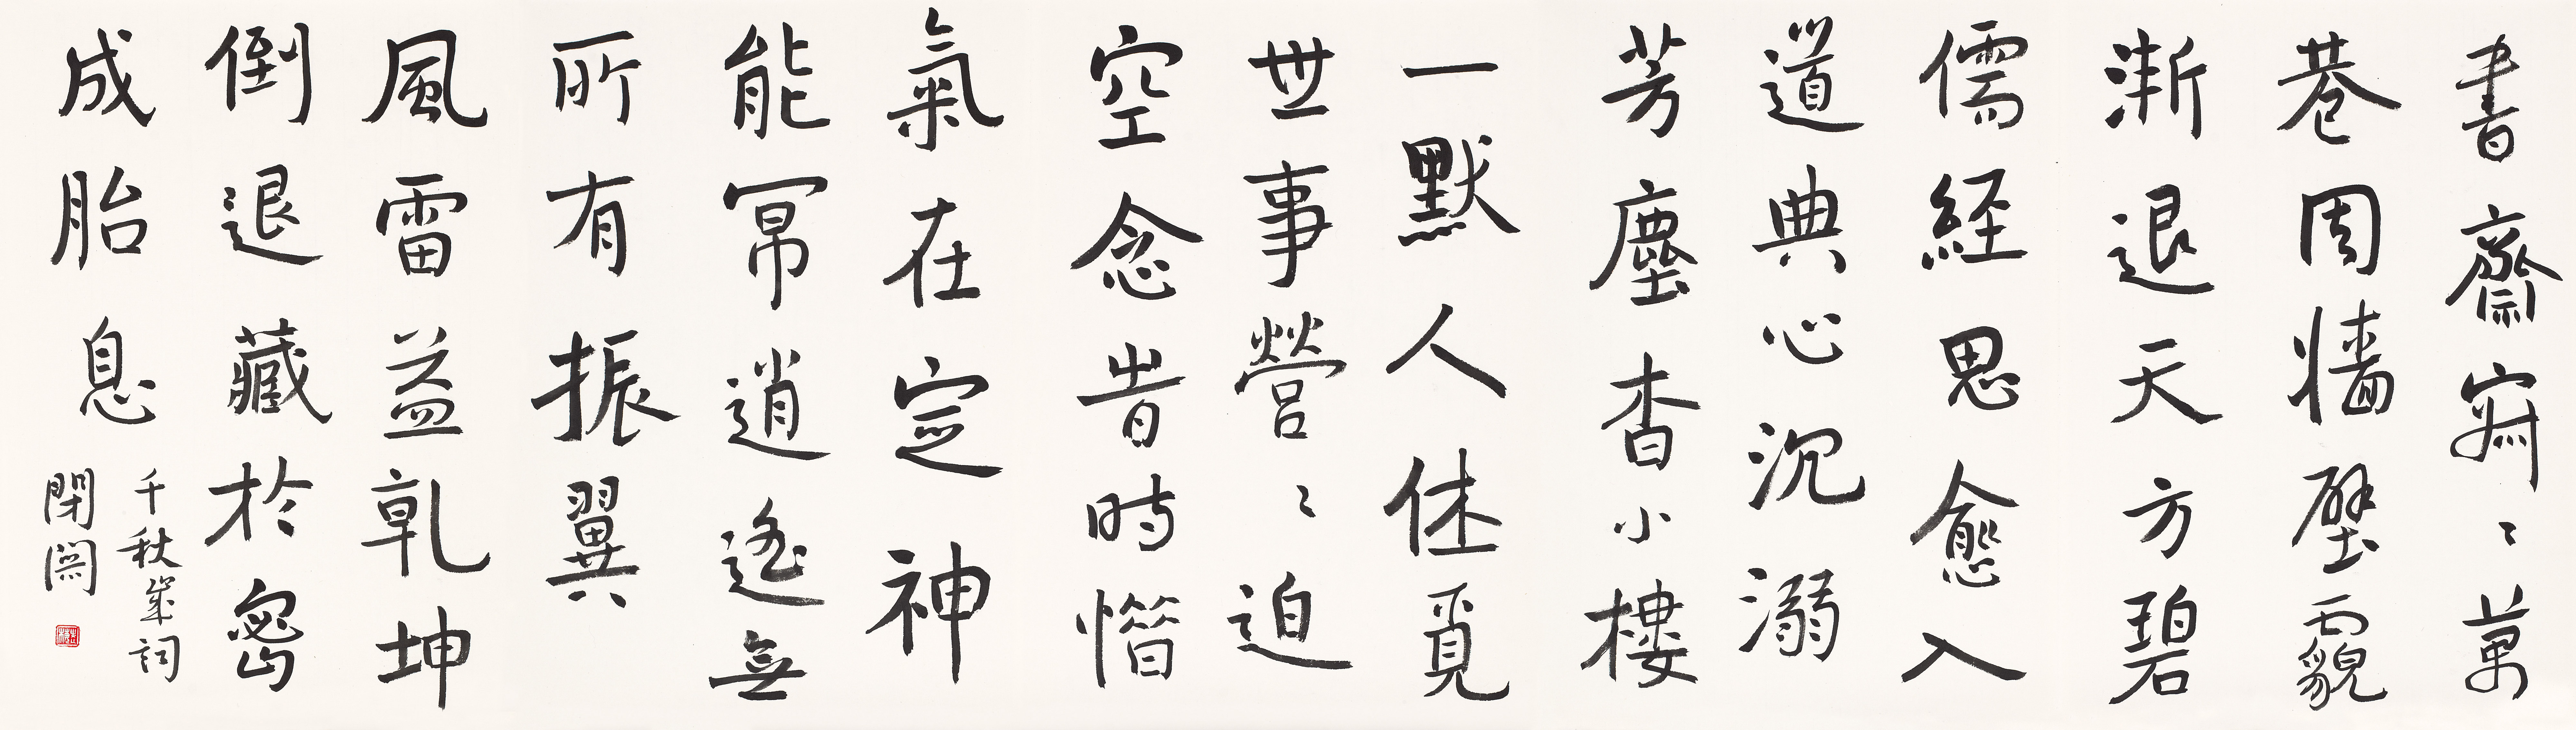 書齋寂〻萬
巷周牆壁霾
漸退天方碧
儒經思愈入
道典心沉溺
芳塵杳小樓
一默人休覓
世事營〻迫
空念昔時惜
氣在定神
能幂逍遙無
所有振翼
風雷益乾坤
倒退藏於密
成胎息
千秋歲詞
閉關